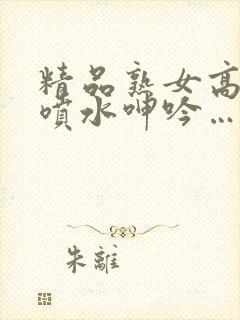 精品熟女高
噴水呻吟…
朱離